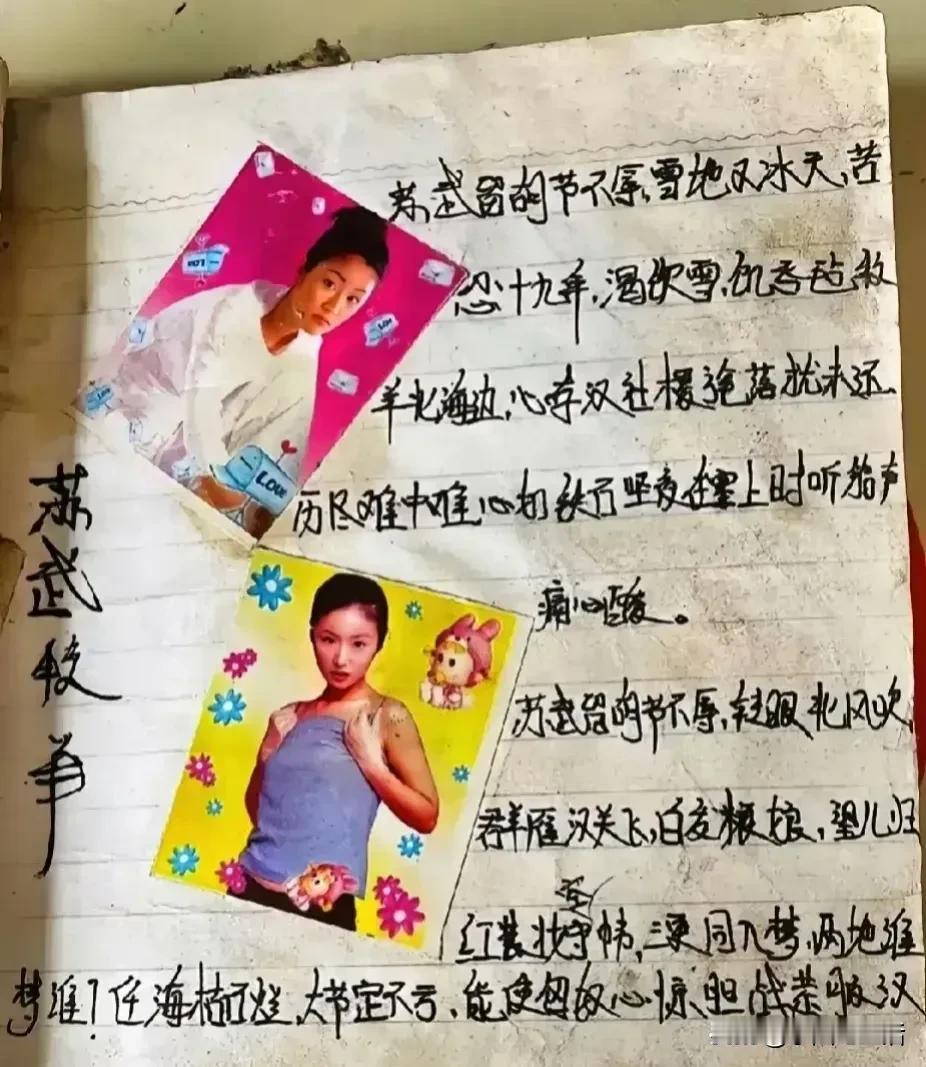 苏武牧羊
苏武留胡节不辱,雪地又冰天,苦
忍十九年,渴饮雪,饥吞毡牧
羊北海边,心存汉社稷旄落犹未还
历尽难中难心如铁石坚夜在塞上时听笳声
痛心酸。
苏武留胡节不辱,转眼北风吹,
群雁汉关飞,白发娘,望儿归
空
红装守帏,三更同入梦,两地谁
梦谁?任海枯石烂,大节定不亏,能使匈奴心惊胆战恭服汉
LOVE
LOVE